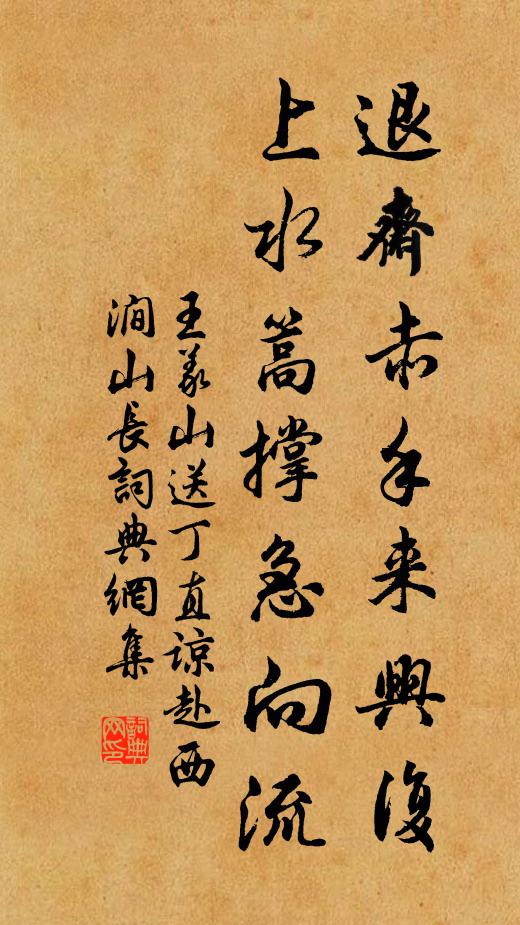 退齋赤手来興復
上水篙撐急向流
王義山送丁直諒赴西
澗山長詞典網集
詞典網印